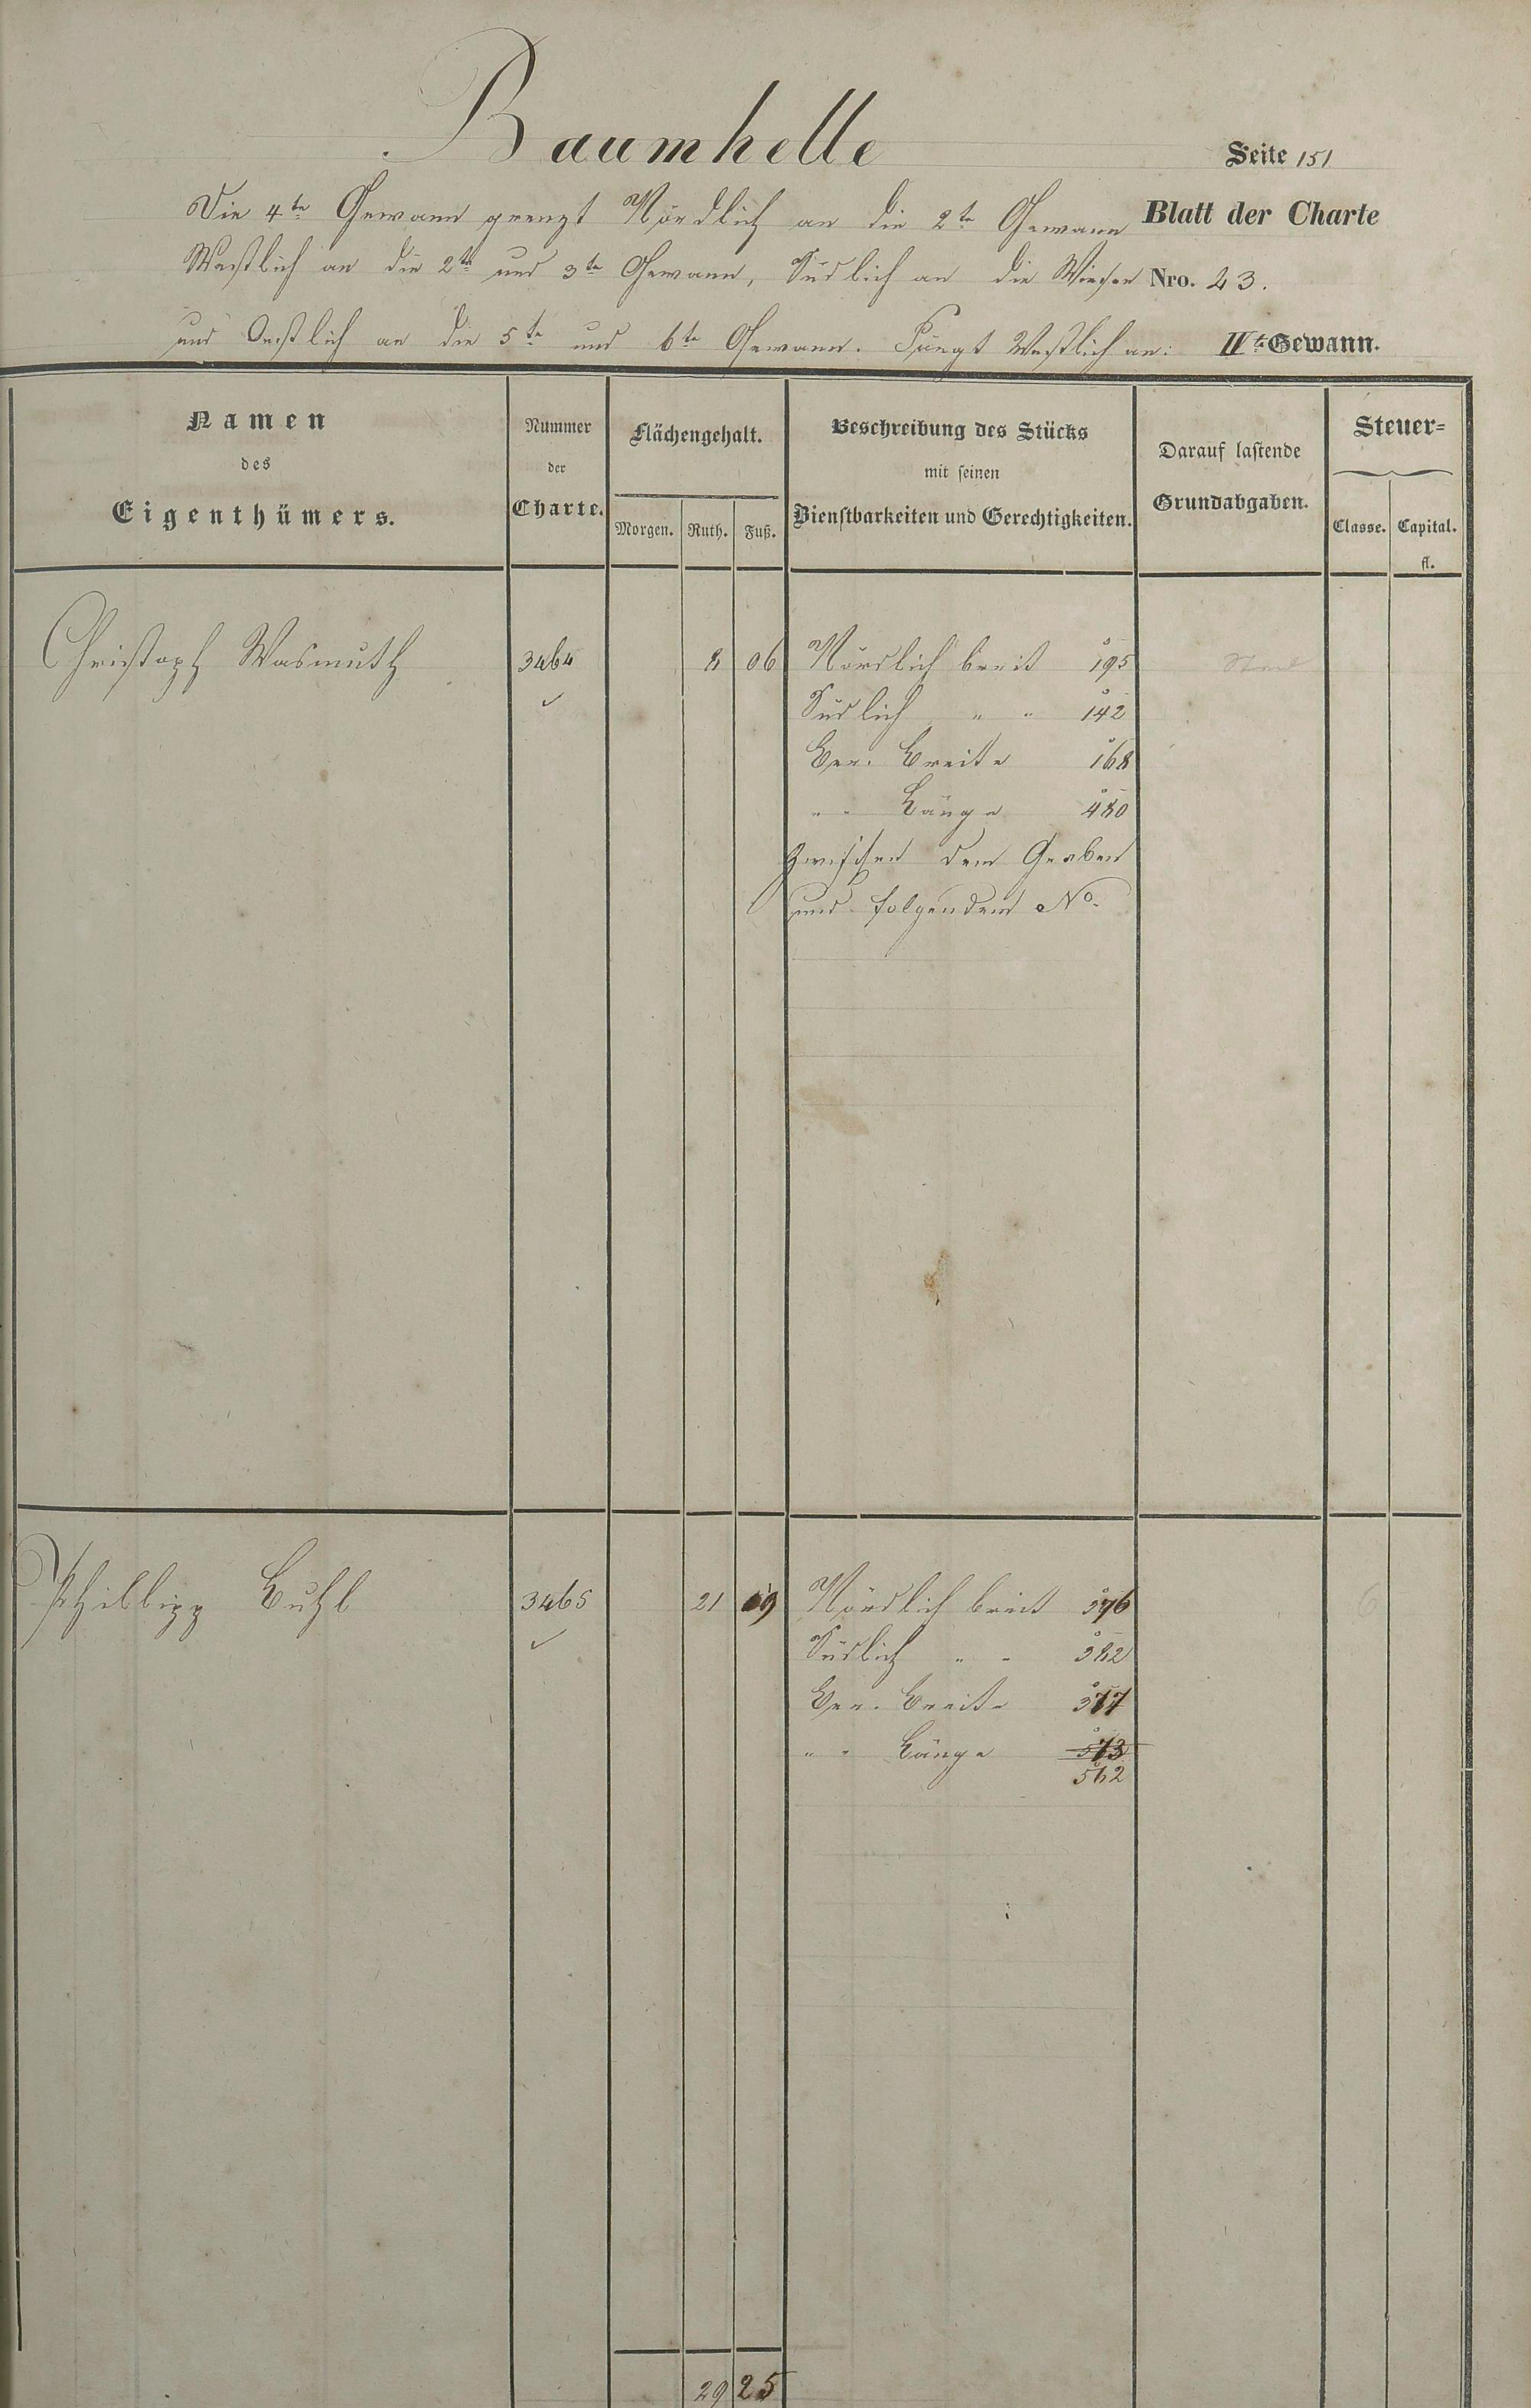 Baumhelle
Seite 151
Die 4te Gewann grenzt Nördlich an die 2te Gewann
Blatt der Charte
Westlich an die 2te und 3te Gewann, Südlich an die Wiesen
Nro. 23.
und Oestlich an die 5te und 6te Gewann. Fängt Westlich an:
IVte Gewann.
Namen
des
Eigenthümers.
Nummer
der
Charte.
Flächengehalt.
Morgen. Ruth. Fuß.
Beschreibung des Stücks
mit seinen
Dienstbarkeiten und Gerechtigkeiten.
Darauf lastende
Grundabgaben.
Steuer-
Classe. Capital.
fl.
Christoph Wasmuth 3464 8 06 Nördlich breit 195
Südlich " " 142
Ber. Breite 168
" " Länge 480
zwischen dem Graben
und folgendem No.
Phillipp Buhl 3465 21 19 Nördlich breit 376
Südlich " " 382
Ber. Breite 377
" " Länge 573
562
29 25